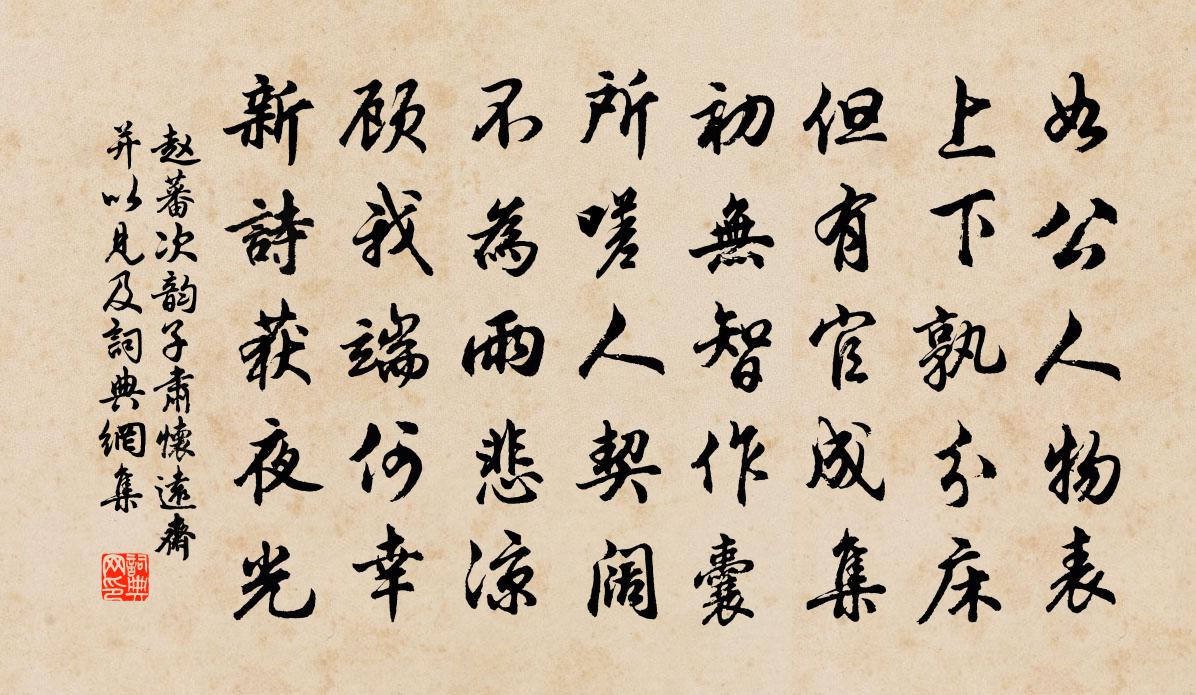 如公人物表
上下孰分床
但有官成集
初無智作囊
所嗟人契阔
不為雨悲涼
顾我端何幸
新詩获夜光
赵蕃次韵子肅懷遠齋
并以見及詞典網集
詞典
网印